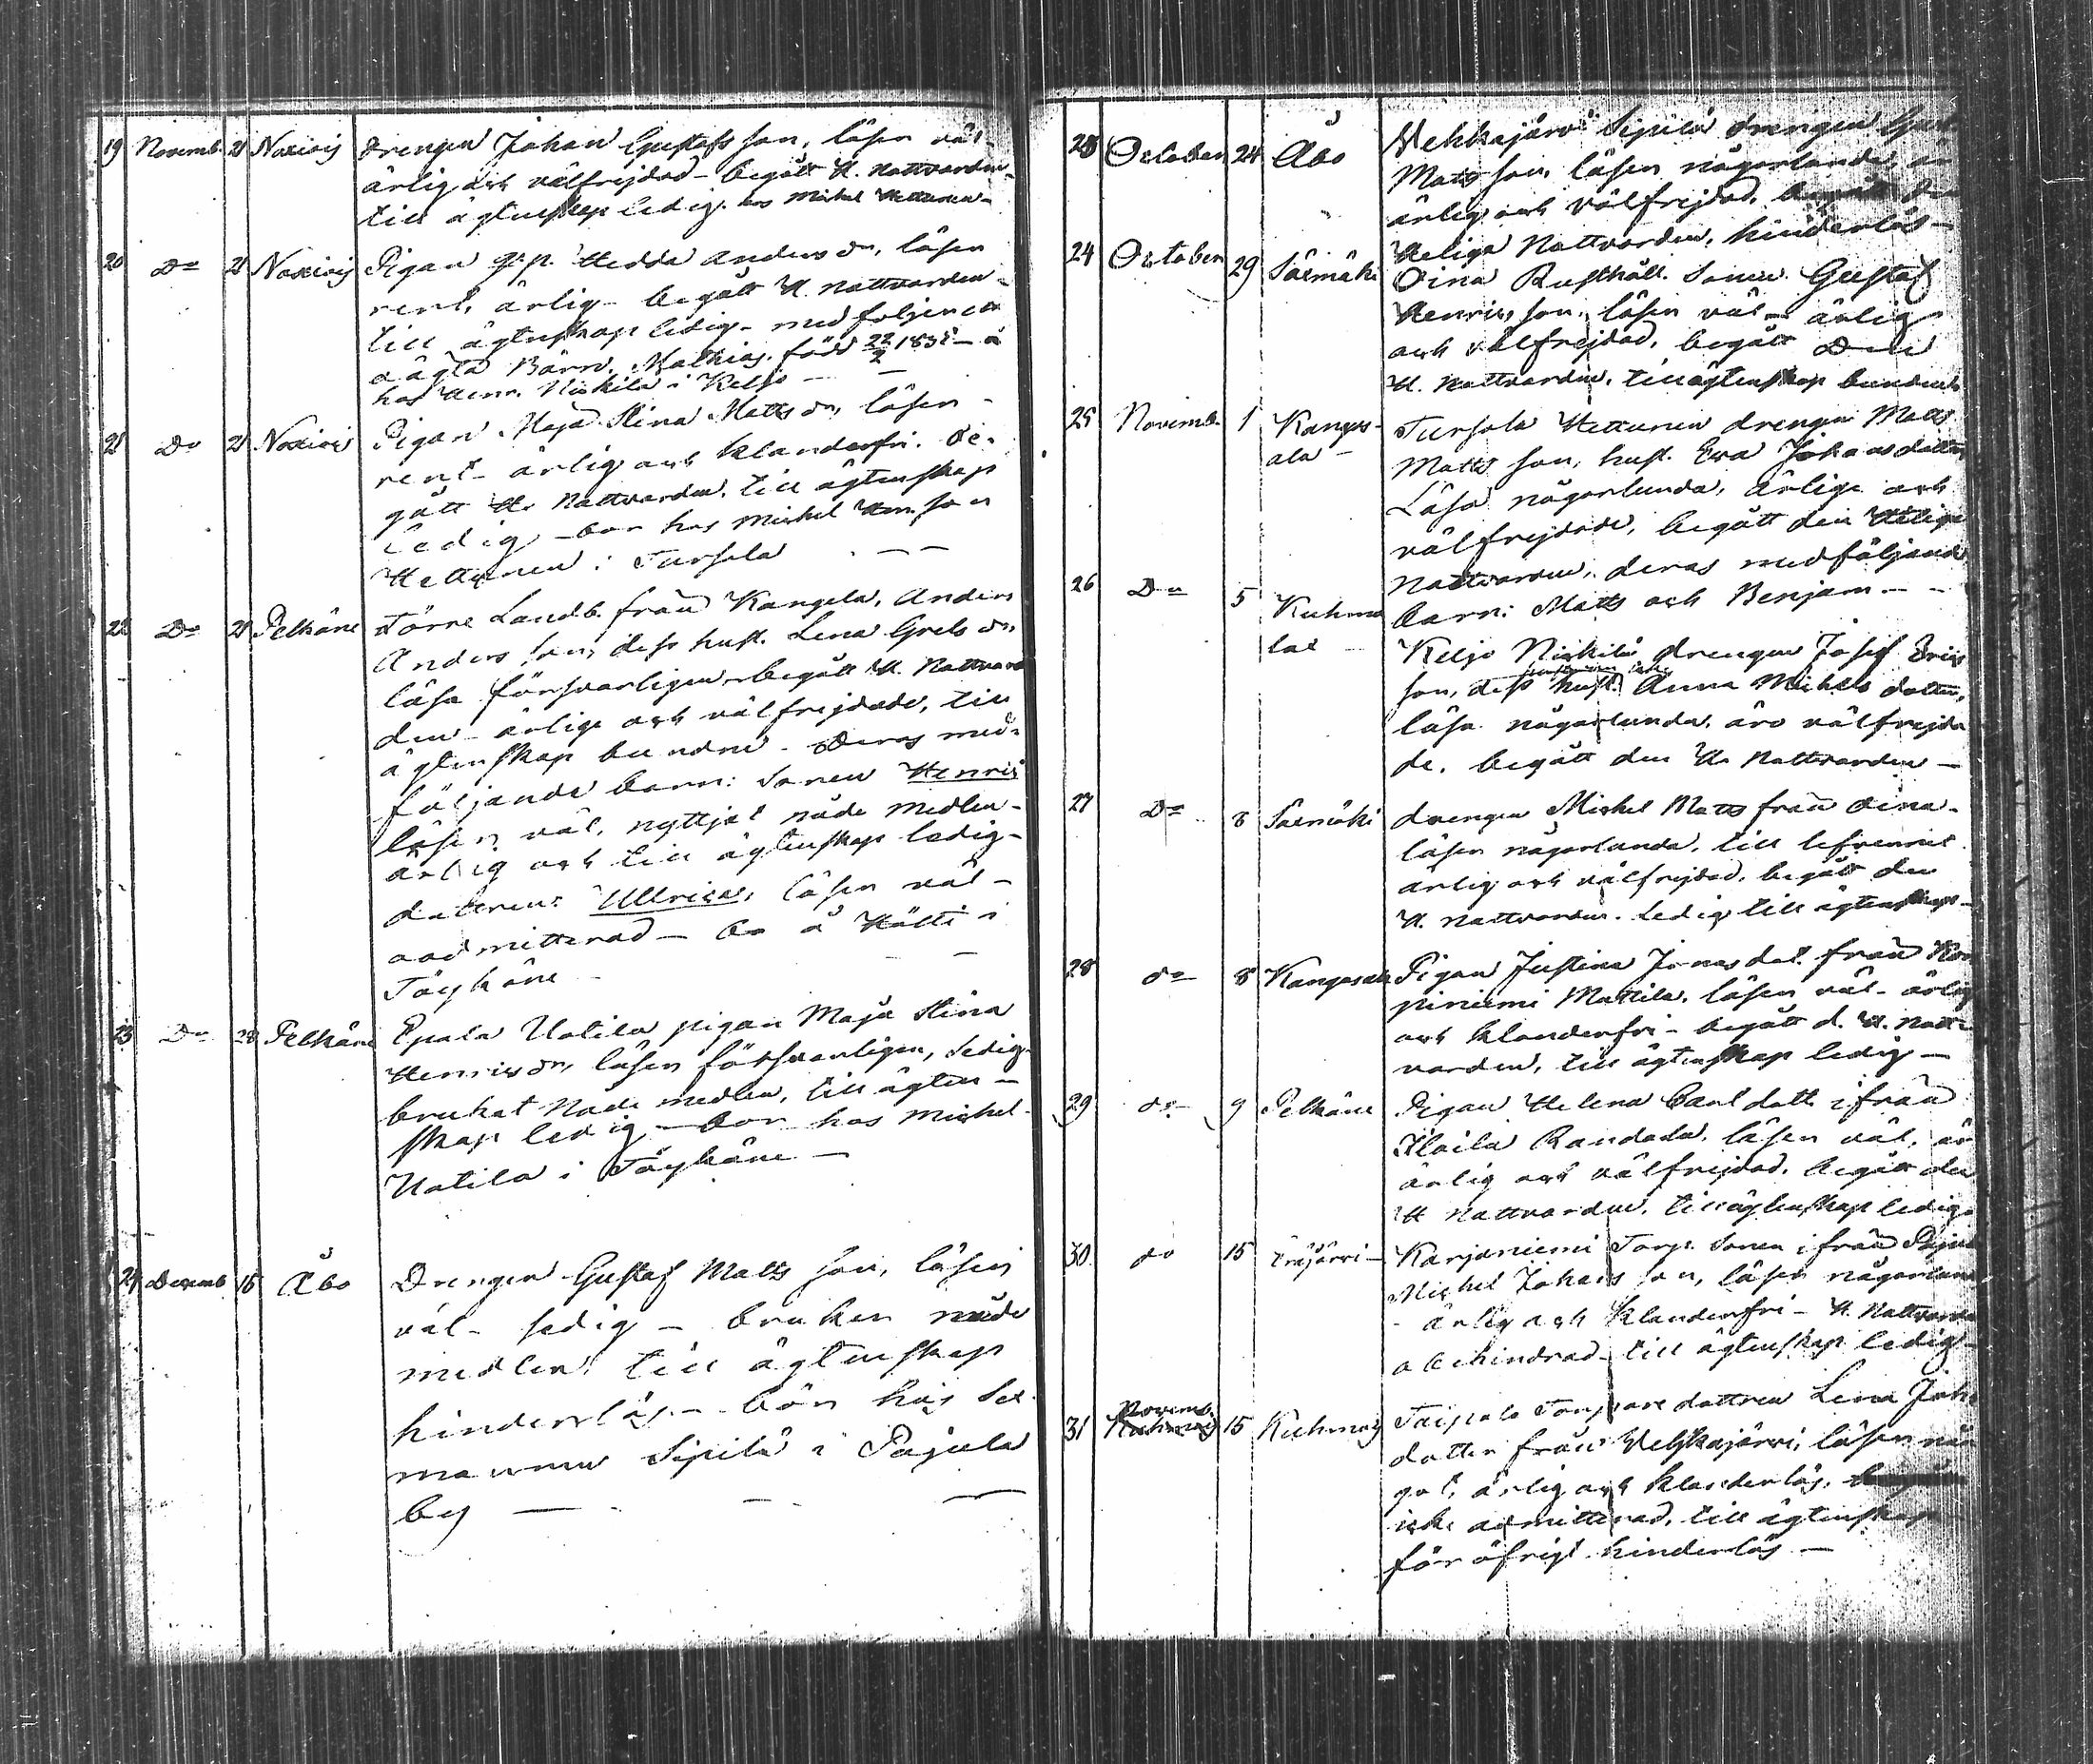 19 Novemb. 21 Noxivij Drengen Johan Gustafs son, läser väl-
ärlig och välfrejdad - begått H. Nattvarden -
till ägtenskap ledig. hos Michel Hetturen -
20 Do 21 Noxivij Pigan Hedda Anders dr, läser
rent, ärlig - begått H. Nattvarden -
till ägtenskap ledig - medföljer
oägta Barn, Mathias, född 22/2
hos Henr. Niskila i Keljo -
21 Do 21 Noxivij Pigan Maja Stina Matts dr, läser -
rent - ärlig och klanderfri. Be-
gått H. Nattvarden, till ägtenskap
ledig - bor hos Michel Hen. son
Hetturen i Tursola - -
22 Do 21 Pelkäne Törne Landb. från Kangela, Anders
Anders son, dess hust. Lena Grels dr
läsa försvarligen - begått H. Nattvar
den - ärlige och välfrejdade, till
ägtenskap bundne - Deras med-
följande barn: Sonen Henric
läser väl, nyttjat nåde medlen -
ärlig och till ägtenskap ledig -
dottren: Ullrica, läser väl -
oadmitterad - bo å Hätti i
Töyhäne - -
23 Do 28 Pelkäne Epala Uotila pigan Maja Stina
Henrics dr, läser försvarligen, Sedig
brukat Nåde medlen, till ägten -
skap ledig - bor hos Michel
Uotila i Töyhäne -
24 Decemb. 15 Åbo Drengen Gustaf Matts son, läser
väl - sedig - bruker nåde
medlen, till ägtenskap
hinderslös - bör hos
Sipilä i Pajula
by - - -
23 October 24 Åbo Vehkajärvi Sipilä drengen
Matts son, läser någorlunda, är
ärlig och välfrejdad,
Heliga Nattvarden, hinderlös -
24 October 29 Säxmäki Oina Rusthåll. Sonen Gustaf
Henrics son, läser väl - ärlig
och välfrejdad, begått Den
H. Nattvarden, till ägtenskap bunden
25 Novemb. 1 Kangas- Tursola Hetturen drengen Matts
ala - Matts son, hust. Eva Johans dotter
Läsa någorlunda, ärlige och
välfrejdade, begått den Helige
Nattvarden, deras medföljande
barn: Matts och Benjam - -
26 Do 5 Kuhma Keljo Niskilä drengen Josef Erics
lax - son, dess hust. Anna Michels dotter,
läsa någorlunda, äro välfrejda
de, begått den H. Nattvarden -
27 Do 8 Säxmäki drengen Michel Matts från Oina -
läser någorlunda, till lefvernet
ärlig och välfrejdad, begått den
H. Nattvarden. Ledig till ägtenskap -
28 do 8 Kangasala Pigan Justina Jonas dot. från
piniemi Mattila, läser väl - ärlig
och klanderfri - begått d. H. Natt-
varden, till ägtenskap ledig -
29 do 9 Pelkäne Pigan Helena Carl dott. ifrån
Ilaila Randala, läser väl, är
ärlig och välfrejdad, begått den
H. Nattvarden, till ägtenskap ledig
30 do 15 Eräjärvi - Karjaniemi Torp. Sonen ifrån
Michel Johans son, läser någorlunda
- ärlig och klanderfri - H. Nattvarden
obehindrad - till ägtenskap ledig -
31 Novemb. 15 Kuhmoij Taipale Torpare dottren Lena Joh.
dotter från Vehkajärvi, läser nå
got, ärlig och klanderlös,
icke admitterad, till ägtenskap
för öfrigt hinderlös -